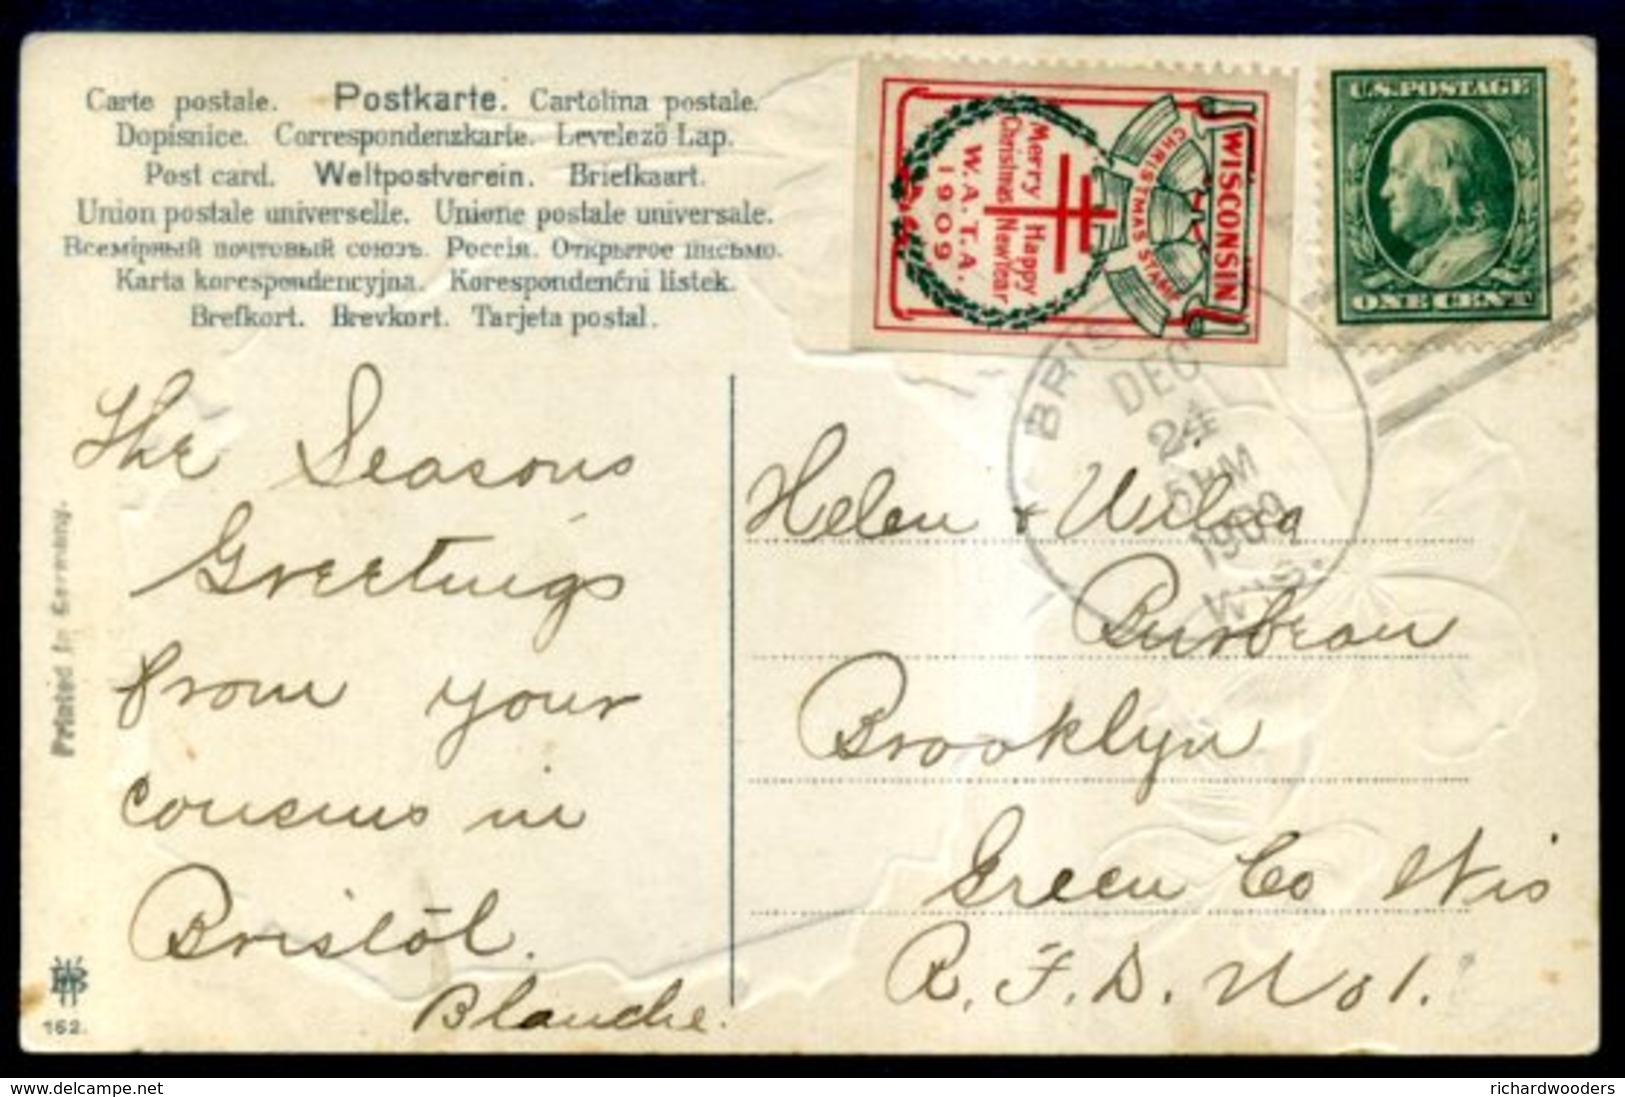 Carte postale. Postkarte. Cartolina postale.
Dopisnice. Correspondenzkarte. Levelező Lap.
Post card. Weltpostverein. Briefkaart.
Union postale universelle. Unione postale universale.
Всемірный почтовый союзъ. Россія. Открытое письмо.
Karta korespondencyjna. Korespondenčni listek.
Brefkort. Brevkort. Tarjeta postal.
WISCONSIN
CHRISTMAS STAMP
Merry Happy
Christmas New Year
W.A.T.A.
1909
U.S.POSTAGE
ONE CENT
DEC
24
1909
WIS.
The Seasons
Greetings
from your
cousins in
Bristol.
Blanche.
Helen & Wilva
Brooklyn
Green Co Wis
R.F.D. No 1.
Printed in Germany.
162.
delcampe.net
richardwooders